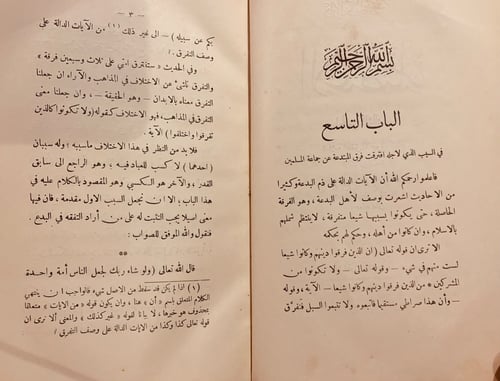 بسم الله الرحمن الرحيم
الباب التاسع
في السبب الذي لاجله افترقت فرق المبتدعة عن جماعة المسلمين
فاعلموا رحمكم الله أن الآيات الدالة على ذم البدعة وكثيرا
من الاحاديث اشعرت بوصف لأهل البدعة، وهو الفرقة
الحاصلة، حتى يكونوا بسببها شيعا متفرقة، لا ينتظم شملهم
بالاسلام، وان كانوا من أهله، وحكم لهم بحكمه
الا ترى ان قوله تعالى (ان الذين فرقوا دينهم وكانوا شيعا
لست منهم في شيء — وقوله تعالى — ولا تكونوا من
المشركين * من الذين فرقوا دينهم وكانوا شيعا — الآية، وقوله
— وأن هذا صراطي مستقيما فاتبعوه ولا تتبعوا السبل فتفرق
— ٣ —
بكم عن سبيله) — الى غير ذلك (١) من الآيات الدالة على
وصف التفرق.
وفي الحديث «ستفترق امتي على ثلاث وسبعين فرقة»
والتفرق ناشئ عن الاختلاف في المذاهب والآراء ان جعلنا
التفرق معناه بالابدان — وهو الحقيقة — وان جعلنا معنى
التفرق في المذاهب، فهو الاختلاف كقوله (ولا تكونوا كالذين
تفرقوا واختلفوا) الآية.
فلا بد من النظر في هذا الاختلاف ما سببه؛ وله سببان
(احدهما) لا كسب للعباد فيه؛ وهو الراجع الى سابق
القدر، والآخر هو الكسبي وهو المقصود بالكلام عليه في
هذا الباب، الا ان نجعل السبب الاول مقدمة، فان فيها
معنى اصيلا يجب التثبت له على من أراد التفقه في البدع.
فنقول والله الموفق للصواب:
**
قال الله تعالى (ولو شاء ربك لجعل الناس أمة واحدة
(١) اما ان يكن قد سقط من الاصل شيء فالواجب ان ينتهي
الكلام المتعلق باسم «أن» هنا، وان يكون قوله «من الآيات» متعلقا
بمحذوف هو خبرها، لا بيانا لقوله «غير ذلك» والمعنى ألا ترى ان
قوله تعالى كذا وكذا من الايات الدالة على وصف التفرق؛